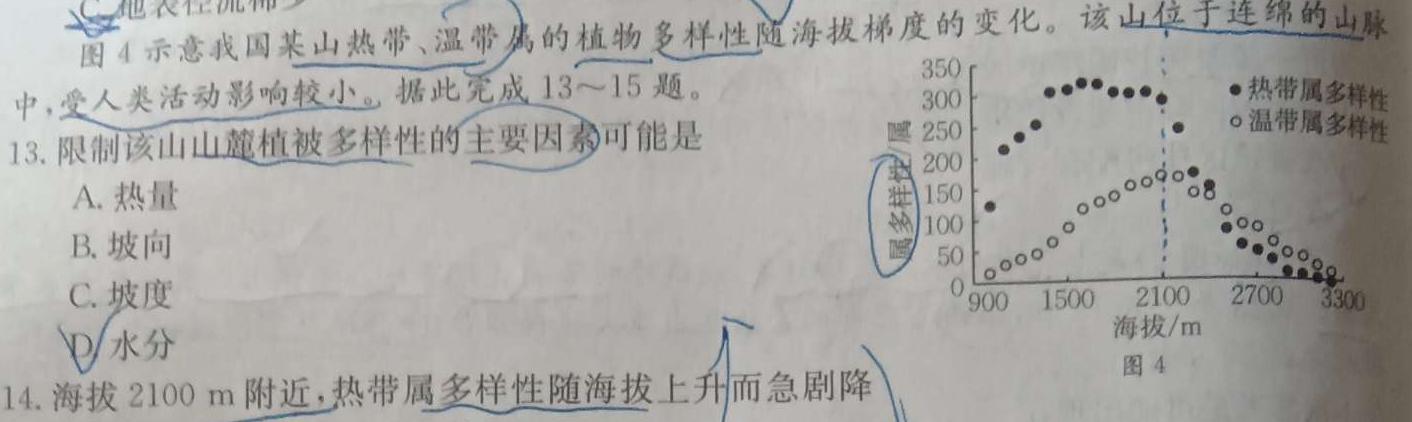 C. 地表径流稀少
图 4 示意我国某山热带、温带属的植物多样性随海拔梯度的变化。该山位于连绵的山脉
中,受人类活动影响较小。据此完成 13~15 题。
13. 限制该山山麓植被多样性的主要因素可能是
A. 热量
B. 坡向
C. 坡度
D. 水分
14. 海拔 2100 m 附近,热带属多样性随海拔上升而急剧降
属多样性/属
350
300
250
200
150
100
50
0
900 1500 2100 2700 3300
海拔/m
● 热带属多样性
○ 温带属多样性
图 4